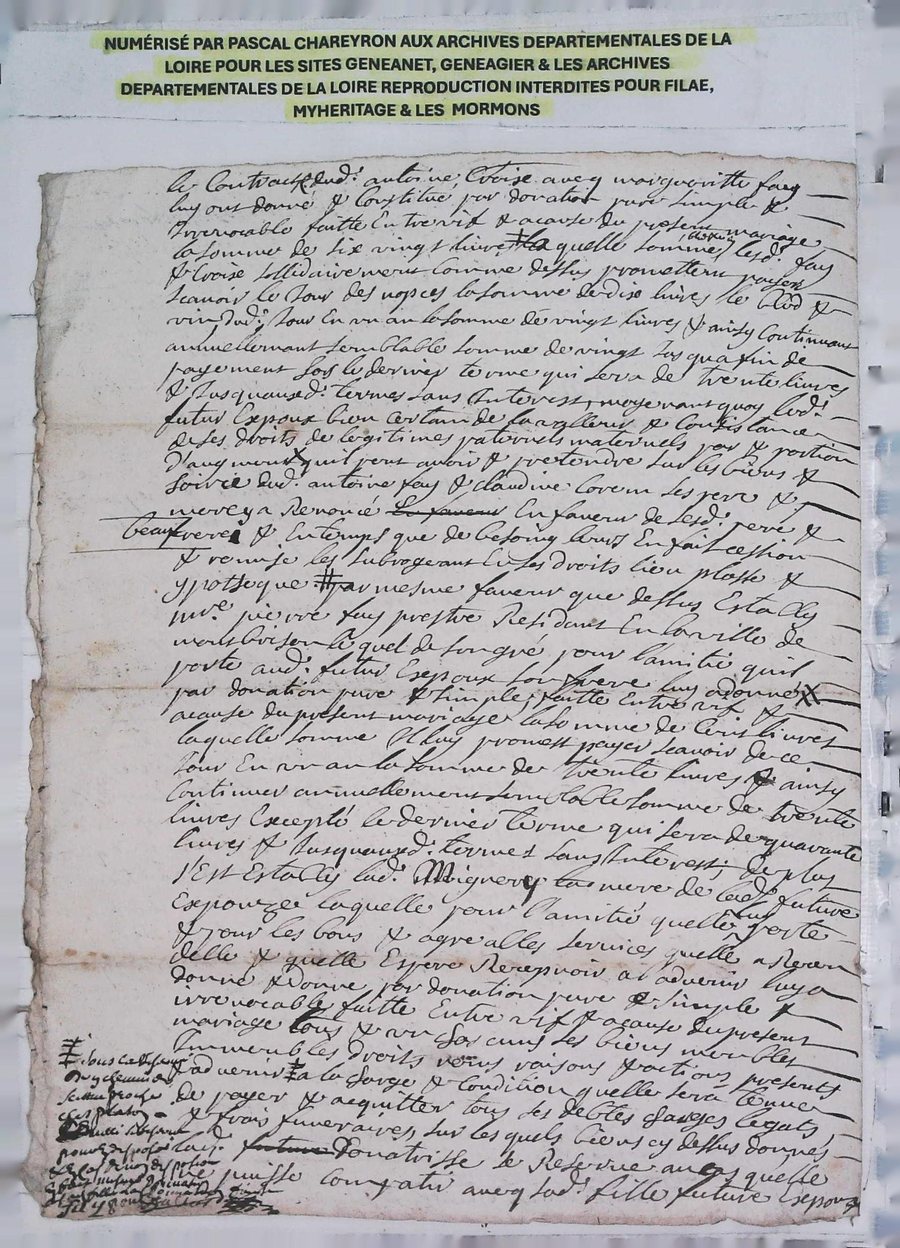 NUMÉRISÉ PAR PASCAL CHAREYRON AUX ARCHIVES DEPARTEMENTALES DE LA
LOIRE POUR LES SITES GENEANET, GENEAGIER & LES ARCHIVES
DEPARTEMENTALES DE LA LOIRE REPRODUCTION INTERDITES POUR FILAE,
MYHERITAGE & LES MORMONS
le Contract dud. antoine Croise aveq margueritte fay
luy ont donné & Constitué par donation pure simple &
Irrevocable faitte Entre vif & acause du présent mariage
la somme de six vingt livres la quelle somme lesd. fay
& Croise sollidairement Comme dessus promettent payer
scavoir le Jour des nopces la somme de dix livres le bled &
vin Jour En un an la somme de vingt livres & ainsy Continuant
annuellement semblable somme de vingt Jusqua fin de
payement sors le dernier terme qui sera de trente livres
& Jusquausd. termes sans Interest, moyenant quoy led.
futur Expoux bien certain de la valleur & Consistance
de ses droits de legitimes paternels maternels part & portion
d'augment quil peut avoir & pretendre sur les biens &
dud. antoine fay & claudine ses pere &
mere a Renoncé En faveur de sesd. pere &
beaufrere & Entemps que de besoing leurs En fait cession
& remise les subrogeant En ses droits lieu plasse &
ypotheque par mesme faveur que dessus Estably
mre. pierre fay prestre Residant En la ville de
montbrison le quel de son gré pour l'amitié quil
porte aud. futur Expoux son frere luy a donné
par donation pure & simple faitte Entre vif &
acause du présent mariage la somme de Cent livres
laquelle somme Il luy promest payer scavoir de ce
Jour En un an la somme de trente livres & ainsy
Continuer annuellement semblable somme de trente
livres Excepté le dernier terme qui sera de quarante
livres & Jusquausd. termes sans Interest, de plus
s'Est Estably lad. Mignery mere de lad. future
Expouze laquelle pour l'amitié quelle luy porte
& pour les bons & agreables services quelle a Receu
delle & quelle Espere Recepvoir a l'advenir luy a
donné & donne par donation pure & simple &
irrevocable faitte Entre vif & acause du present
mariage tous & un Sascuns ses biens meubles
Immeubles droits noms raisons & actions presents
& advenir a la Sarge & Condition quelle sera tenue
de payer & acquitter tous ses debtes Sarges legats
& frais funeraires, sur les quels biens cy dessus donnés
lad. donatrisse se Reserve au cas quelle
ne puisse compatir aveq sad. fille future Expouze